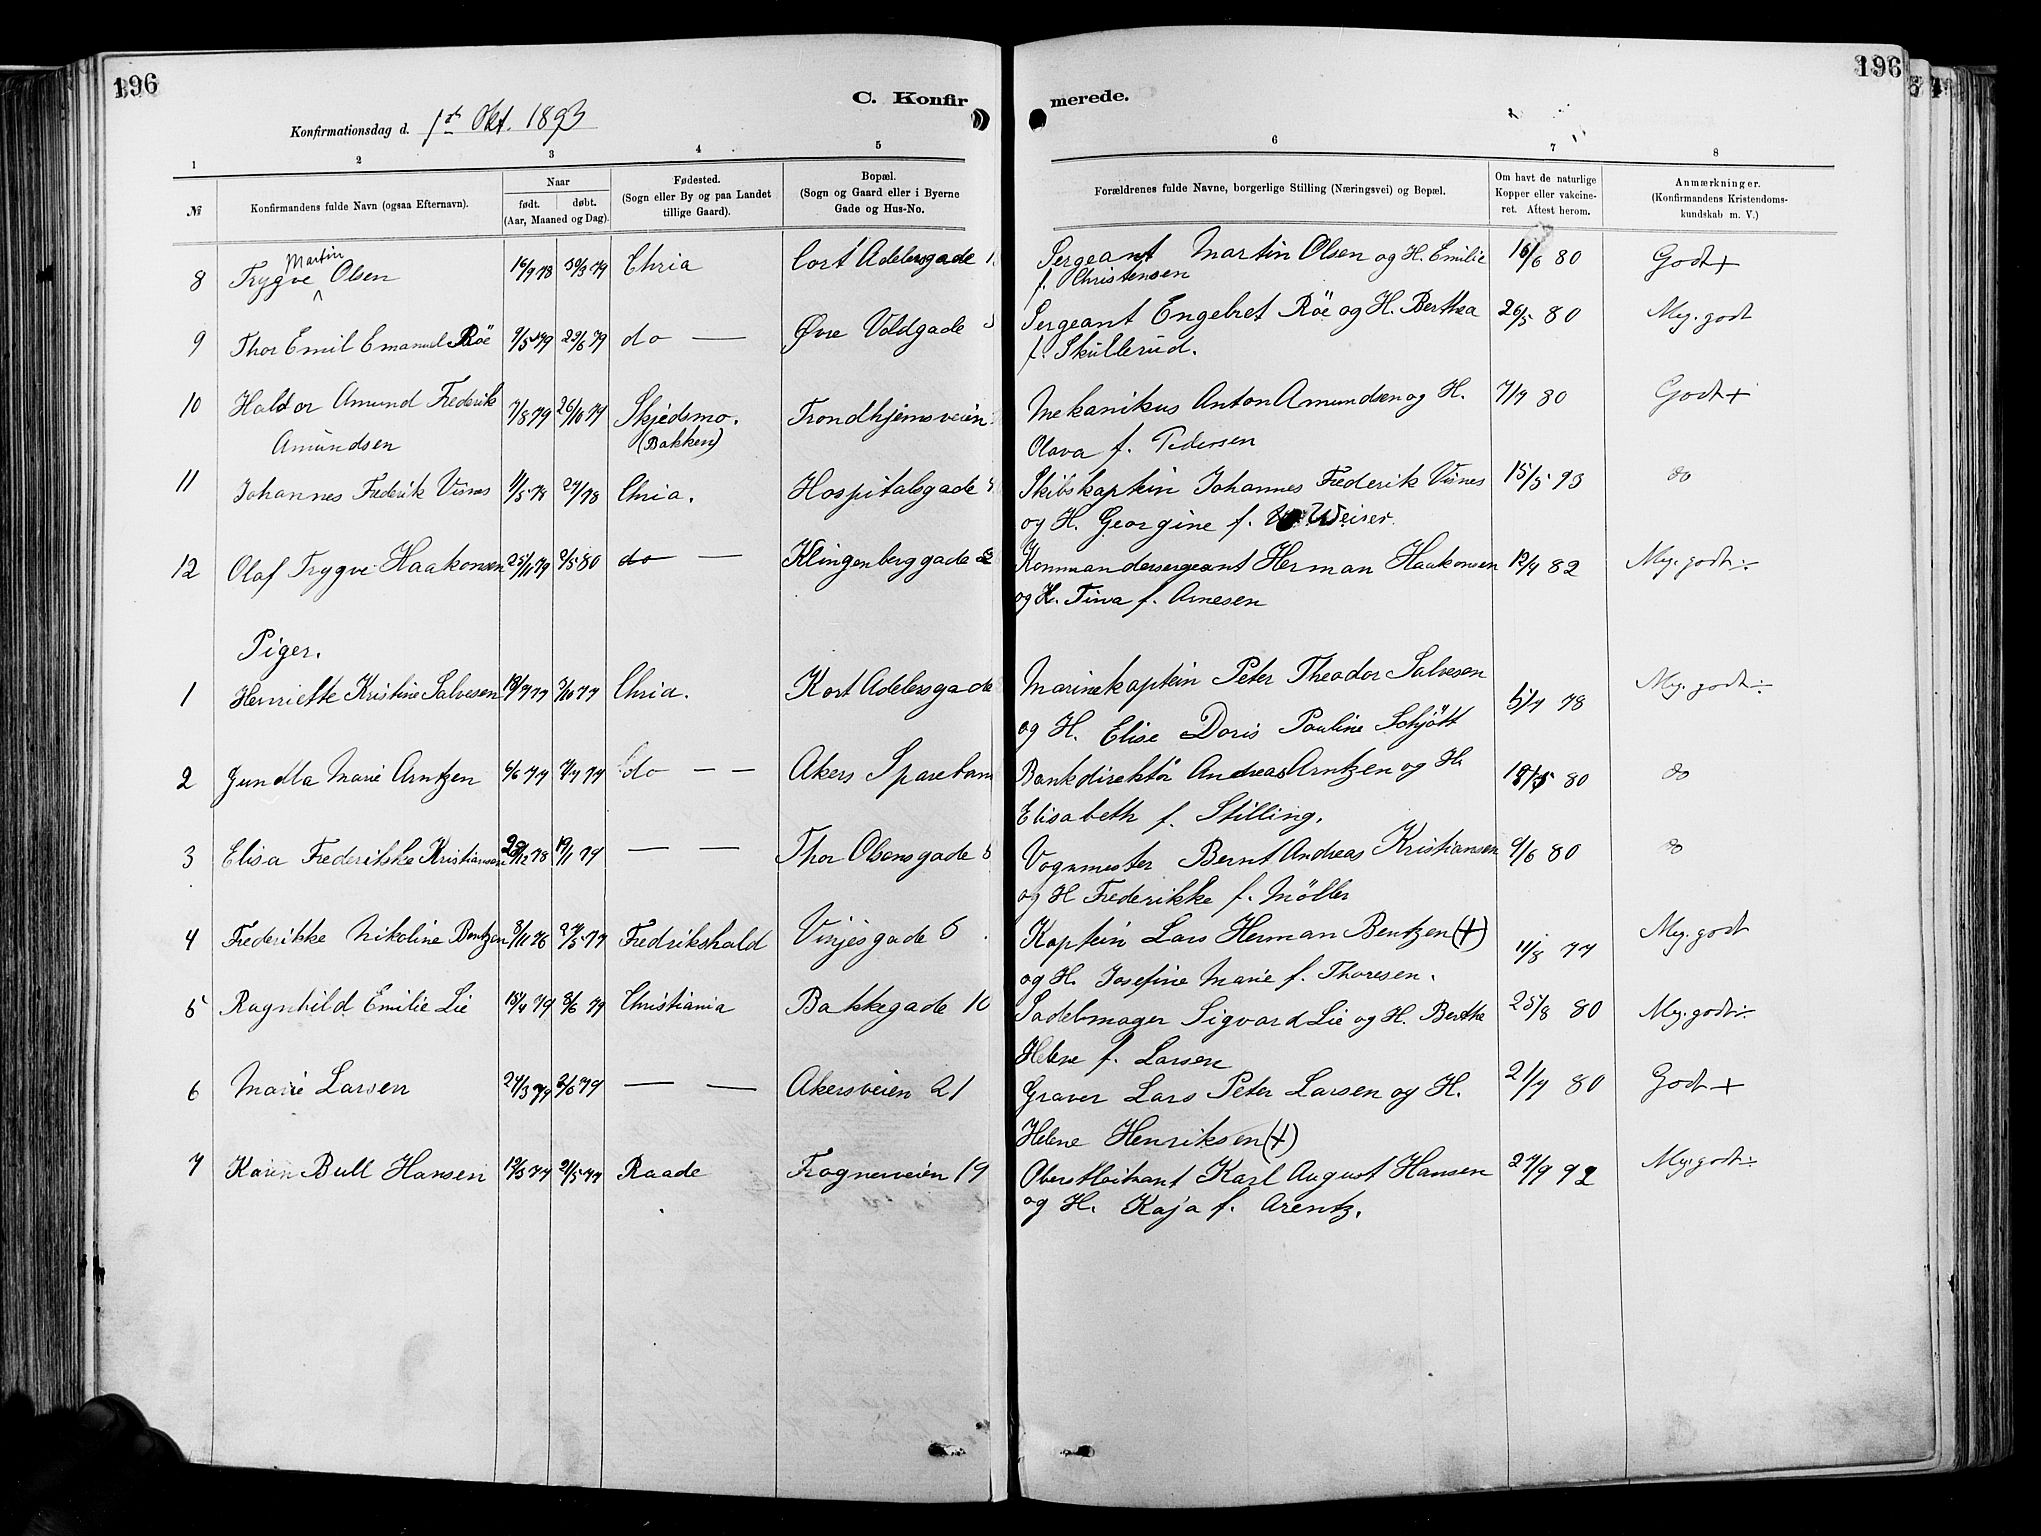 196
196
C. Konfir
merede.
Konfirmationsdag d. 1ste Okt. 1893
1 2 3 4 5 6 7 8
№
Konfirmandens fulde Navn (ogsaa Efternavn).
Naar
født. døbt.
(Aar, Maaned og Dag).
Fødested.
(Sogn eller By og paa Landet
tillige Gaard).
Bopæl.
(Sogn og Gaard eller i Byerne
Gade og Hus-No.
Forældrenes fulde Navne, borgerlige Stilling (Næringsvei) og Bopæl.
Om havt de naturlige
Kopper eller vakcine-
ret. Attest herom.
Anmærkninger.
(Konfirmandens Kristendoms-
kundskab m. V.)
8 Trygve Martin Olsen 16/9 78 30/3 79 Chria Cort Adelersgade Sergeant Martin Olsen og H. Emilie 16/6 80 Godt +
f. Christensen
9 Thor Emil Emanuel Röe 9/5 79 29/6 79 do — Øvre Voldgade Sergeant Engebret Röe og H. Berthea 26/5 80 Meg. godt
f. Skullerud.
10 Haldor Amund Frederik 7/8 79 26/10 79 Skjedsmo. Trondhjemsveien Mekanikus Anton Amundsen og H. 7/9 80 Godt +
Amundsen (Bakken) Olava f. Pedersen
11 Johannes Frederik Visnes Chria. Hospitalsgade Skibskaptein Johannes Frederik Visnes 15/5 93 do
og H. Georgine f. Weiser.
12 Olaf Trygve Haakonsen 25/11 79 2/5 80 do — Klingenberggade Kommandersergeant Herman Haakonsen 12/4 82 Meg. godt ÷
og H. Tina f. Arnesen
Piger.
1 Henriette Kristine Salvesen Chria. Kort Adelersgade Marinekaptein Peter Theodor Salvesen 78 Meg. godt ÷
og H. Elise Doris Pauline Schjött
2 Gundla Marie Arntzen 6/6 77 do — — Akers Sparebank Bankdirektör Andreas Arntzen og H. 80 do
Elisabeth f. Stilling.
3 Elisa Frederikke Kristiansen 12 78 19/1 79 — — Thor Olsensgade Vognmester Bernt Andreas Kristiansen 9/6 80 do
og H Frederikke f. Möller
4 Frederikke Nikoline Bentzen 3/11 76 27/5 77 Fredrikshald Vinjesgade 6 Kaptein Lars Herman Bentzen (+) 11/8 77 Meg. godt
og H. Josefine Marie f. Thoresen.
5 Ragnhild Emilie Lie 18/4 79 8/6 79 Christiania Bakkegade 10 Sadelmager Sigvard Lie og H. Berthe 25/8 80 Meg. godt ÷
Helene f. Larsen
6 Marie Larsen 27/3 79 2/6 79 — — Akersveien 21 Graver Lars Peter Larsen og H. 21/7 80 Godt +
Helene Henriksen (+)
7 Karen Bull Hansen 12/3 77 21/5 77 Raade Frognerveien 19 Oberstløitnant Karl August Hansen 27/9 92 Meg. godt ÷
og H. Kaja f. Arentz.